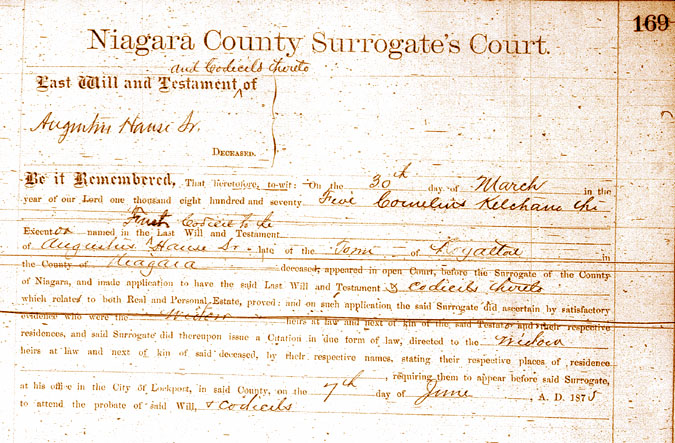 169
Niagara County Surrogate's Court.
and Codicils thereto
Last Will and Testament of
Augustus Hause Sr.
DECEASED.
Be it Remembered, That heretofore, to-wit: On the 30th day of March in the
year of our Lord one thousand eight hundred and seventy Five Cornelius Ketcham the
First Codicil to the
Executor named in the Last Will and Testament
of Augustus Hause Sr. late of the Town of Royalton in
the County of Niagara deceased, appeared in open Court, before the Surrogate of the County
of Niagara, and made application to have the said Last Will and Testament & codicils thereto
which relates to both Real and Personal Estate, proved: and on such application the said Surrogate did ascertain by satisfactory
evidence who were the Widow heirs at law and next of kin of the said Testator and their respective
residences, and said Surrogate did thereupon issue a Citation in due form of law, directed to the Widow
heirs at law and next of kin of said deceased, by their respective names, stating their respective places of residence
, requiring them to appear before said Surrogate,
at his office in the City of Lockport, in said County, on the 7th day of June , A. D. 1875
to attend the probate of said Will, & codicils